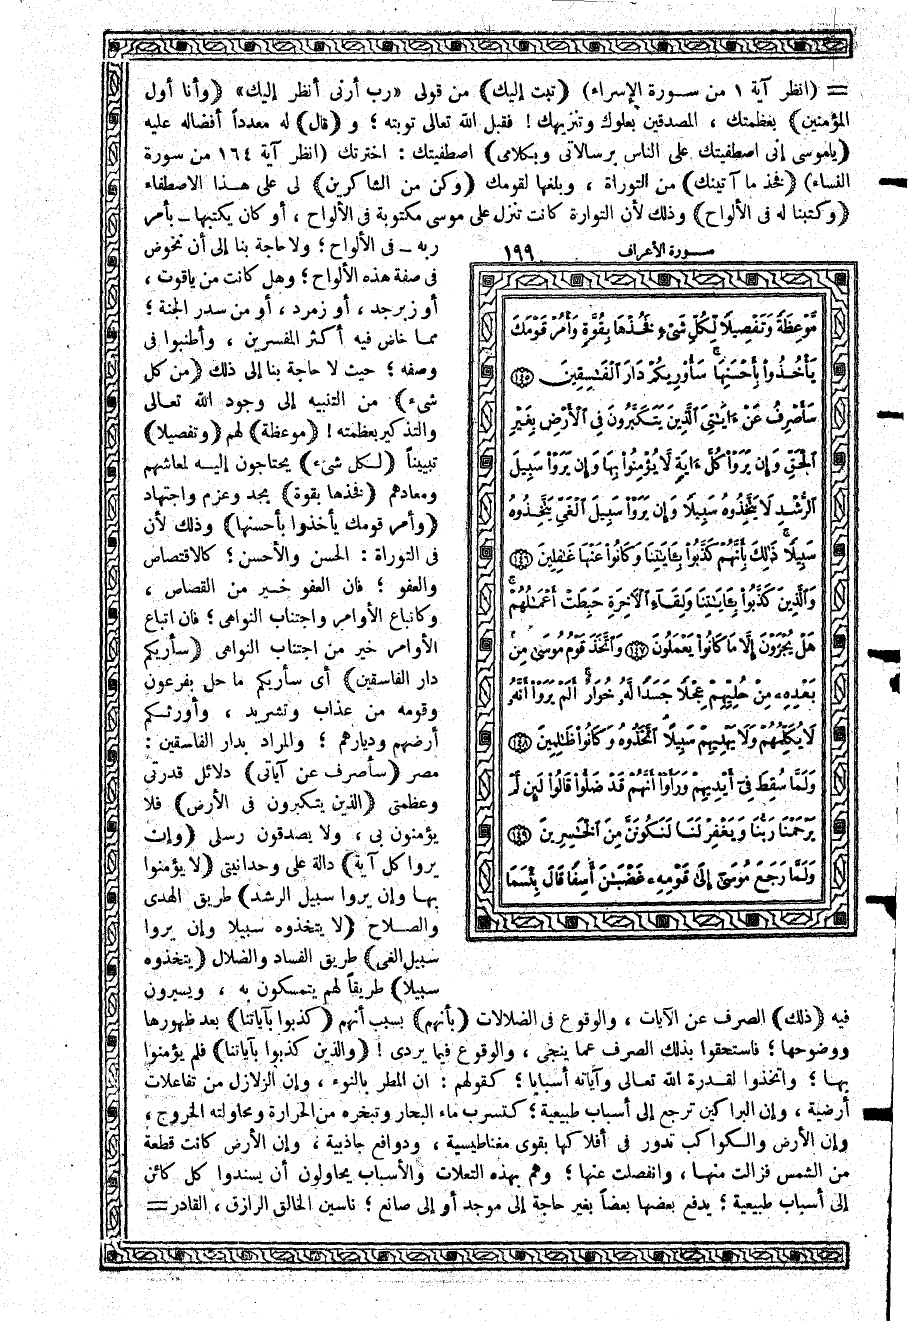 = (انظر آية ١ من سورة الإسراء) (تبت إليك) من قولى «رب أرنى أنظر إليك» (وأنا أول
المؤمنين) بعظمتك ، المصدقين بعلوك وتنزيهك ! فقبل الله تعالى توبته ؛ و (قال) له معدداً أفضاله عليه
(ياموسى إنى اصطفيتك على الناس برسالاتى وبكلامى) اصطفيتك : اخترتك (انظر آية ١٦٤ من سورة
النساء) (فخذ ما آتيتك) من التوراة ، وبلغها لقومك (وكن من الشاكرين) لى على هـذا الاصطفاء
(وكتبنا له فى الألواح) وذلك لأن التوارة كانت تنزل على موسى مكتوبة فى الألواح ، أو كان يكتبها ــ بأمر
ربه ــ فى الألواح ؛ ولا حاجة بنا إلى أن نخوض
فى صفة هذه الألواح ؛ وهل كانت من ياقوت ،
أو زبرجد ، أو زمرد ، أو من سدر الجنة ؛
مما خاض فيه أكثر المفسرين ، وأطنبوا فى
وصفه ؛ حيث لا حاجة بنا إلى ذلك (من كل
شىء) من التنبيه إلى وجود الله تعالى
والتذكير بعظمته ! (موعظة) لهم (وتفصيلا)
تبييناً (لكل شىء) يحتاجون إليه لمعاشهم
ومعادهم (فخذها بقوة) بجد وعزم واجتهاد
(وأمر قومك يأخذوا بأحسنها) وذلك لأن
فى التوراة : الحسن والأحسن ؛ كالاقتصاص
والعفو ؛ فان العفو خير من القصاص ،
وكاتباع الأوامر واجتناب النواهى ؛ فان اتباع
الأوامر خير من اجتناب النواهى (سأريكم
دار الفاسقين) أى سأريكم ما حل بفرعون
وقومه من عذاب وتشريد ، وأورثكم
أرضهم وديارهم ؛ والمراد بدار الفاسقين :
مصر (سأصرف عن آياتى) دلائل قدرتى
وعظمتى (الذين يتكبرون فى الأرض) فلا
يؤمنون بى ، ولا يصدقون رسلى (وإن
يروا كل آية) دالة على وحدانيتى (لا يؤمنوا
بها وإن يروا سبيل الرشد) طريق الهدى
والصلاح (لا يتخذوه سبيلا وإن يروا
سبيل الغى) طريق الفساد والضلال (يتخذوه
سبيلا) طريقاً لهم يتمسكون به ، ويسيرون
سورة الأعراف ١٩٩
مَّوْعِظَةً وَتَفْصِيلًا لِّكُلِّ شَىْءٍ فَخُذْهَا بِقُوَّةٍ وَأْمُرْ قَوْمَكَ
يَأْخُذُوا۟ بِأَحْسَنِهَا ۚ سَأُو۟رِيكُمْ دَارَ ٱلْفَـٰسِقِينَ ١٤٥
سَأَصْرِفُ عَنْ ءَايَـٰتِىَ ٱلَّذِينَ يَتَكَبَّرُونَ فِى ٱلْأَرْضِ بِغَيْرِ
ٱلْحَقِّ وَإِن يَرَوْا۟ كُلَّ ءَايَةٍ لَّا يُؤْمِنُوا۟ بِهَا وَإِن يَرَوْا۟ سَبِيلَ
ٱلرُّشْدِ لَا يَتَّخِذُوهُ سَبِيلًا وَإِن يَرَوْا۟ سَبِيلَ ٱلْغَىِّ يَتَّخِذُوهُ
سَبِيلًا ۚ ذَٰلِكَ بِأَنَّهُمْ كَذَّبُوا۟ بِـَٔايَـٰتِنَا وَكَانُوا۟ عَنْهَا غَـٰفِلِينَ ١٤٦
وَٱلَّذِينَ كَذَّبُوا۟ بِـَٔايَـٰتِنَا وَلِقَآءِ ٱلْـَٔاخِرَةِ حَبِطَتْ أَعْمَـٰلُهُمْ ۚ
هَلْ يُجْزَوْنَ إِلَّا مَا كَانُوا۟ يَعْمَلُونَ ١٤٧ وَٱتَّخَذَ قَوْمُ مُوسَىٰ مِنۢ
بَعْدِهِۦ مِنْ حُلِيِّهِمْ عِجْلًا جَسَدًا لَّهُۥ خُوَارٌ ۚ أَلَمْ يَرَوْا۟ أَنَّهُۥ
لَا يُكَلِّمُهُمْ وَلَا يَهْدِيهِمْ سَبِيلًا ۘ ٱتَّخَذُوهُ وَكَانُوا۟ ظَـٰلِمِينَ ١٤٨
وَلَمَّا سُقِطَ فِىٓ أَيْدِيهِمْ وَرَأَوْا۟ أَنَّهُمْ قَدْ ضَلُّوا۟ قَالُوا۟ لَئِن لَّمْ
يَرْحَمْنَا رَبُّنَا وَيَغْفِرْ لَنَا لَنَكُونَنَّ مِنَ ٱلْخَـٰسِرِينَ ١٤٩
وَلَمَّا رَجَعَ مُوسَىٰٓ إِلَىٰ قَوْمِهِۦ غَضْبَـٰنَ أَسِفًا قَالَ بِئْسَمَا
فيه (ذلك) الصرف عن الآيات ، والوقوع فى الضلالات (بأنهم) بسبب أنهم (كذبوا بآياتنا) بعد ظهورها
ووضوحها ؛ فاستحقوا بذلك الصرف عما ينجى ، والوقوع فيما يردى ! (والذين كذبوا بآياتنا) فلم يؤمنوا
بها ؛ واتخذوا لقدرة الله تعالى وآياته أسبابا ؛ كقولهم : ان المطر بالنوء ، وإن الزلازل من تفاعلات
أرضية ، وإن البراكين ترجع إلى أسباب طبيعية ؛ كتسرب ماء البحار وتبخره من الحرارة ومحاولته الخروج ،
وإن الأرض والكواكب تدور فى أفلاكها بقوى مغناطيسية ، ودوافع جاذبية ، وإن الأرض كانت قطعة
من الشمس فزالت منها ، وانفصلت عنها ؛ وهم بهذه التعلات والأسباب يحاولون أن يسندوا كل كائن
إلى أسباب طبيعية ؛ يدفع بعضها بعضاً بغير حاجة إلى موجد أو إلى صانع ؛ ناسين الخالق الرازق ، القادر =